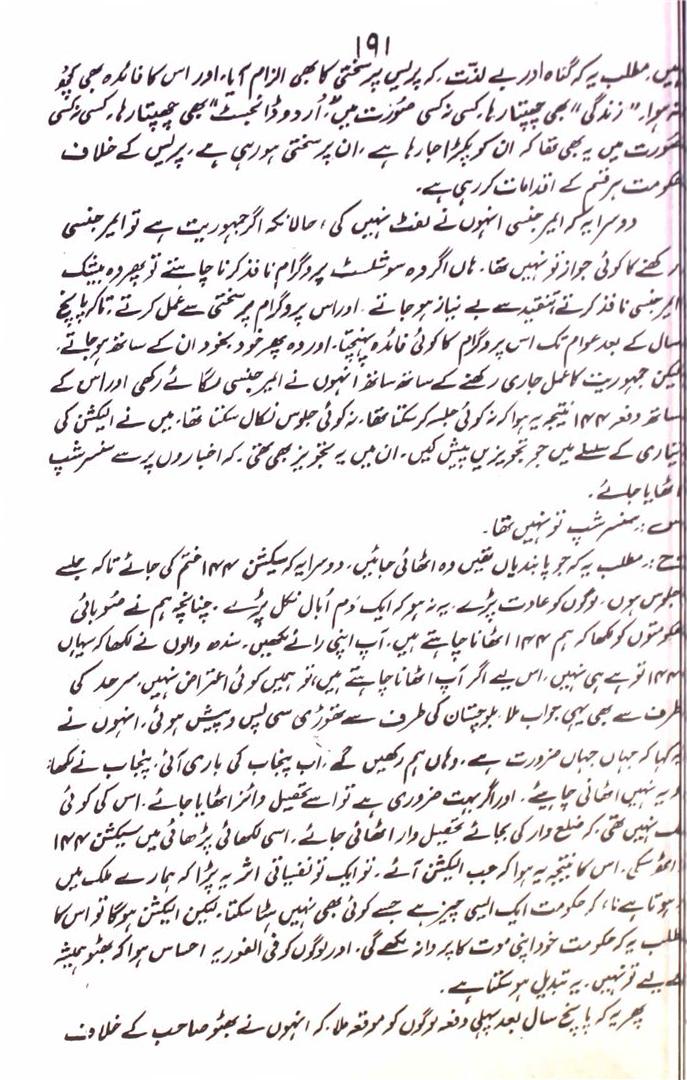 ۱۹۱
ہیں۔ مطلب یہ کہ گناہ اور بے لذت۔ کہ پریس پر سختی کا بھی الزام آیا۔ اور اس کا فائدہ بھی کچھ
نہ ہوا۔ "زندگی" بھی چھپتا رہا، کسی نہ کسی صورت میں، "اُردو ڈائجسٹ" بھی چھپتا رہا، کسی نہ کسی
صورت میں یہ بھی تھا کہ ان کو پکڑا جا رہا ہے، ان پر سختی ہو رہی ہے۔ پریس کے خلاف
حکومت ہر قسم کے اقدامات کر رہی ہے۔
دوسرا یہ کہ ایمرجنسی انہوں نے لفٹ نہیں کی، حالانکہ اگر جمہوریت ہے تو ایمرجنسی
رکھنے کا کوئی جواز تو نہیں تھا۔ ہاں اگر وہ سوشلسٹ پروگرام نافذ کرنا چاہتے تو پھر وہ بیشک
ایمرجنسی نافذ کرتے، تنقید سے بے نیاز ہو جاتے۔ اور اس پروگرام پر سختی سے عمل کرتے، تاکہ پانچ
سال کے بعد عوام تک اس پروگرام کا کوئی فائدہ پہنچتا۔ اور وہ پھر خود بخود ان کے ساتھ ہو جاتے،
لیکن جمہوریت کا عمل جاری رکھنے کے ساتھ ساتھ انہوں نے ایمرجنسی لگائے رکھی اور اس کے
ساتھ دفعہ ۱۴۴ نتیجہ یہ ہوا کہ نہ کوئی جلسہ کر سکتا تھا، نہ کوئی جلوس نکال سکتا تھا، میں نے الیکشن کی
تیاری کے سلسلے میں جو تجویزیں پیش کیں۔ ان میں یہ تجویز بھی تھی۔ کہ اخباروں پر سے سنسر شپ
اٹھایا جائے۔
س:۔ سنسر شپ تو نہیں تھا۔
ج:۔ مطلب یہ کہ جو پابندیاں تھیں وہ اٹھائی جائیں۔ دوسرا یہ کہ سیکشن ۱۴۴ ختم کی جائے تاکہ جلسے
جلوس ہوں، لوگوں کو عادت پڑے۔ یہ نہ ہو کہ ایک دم اُبال نکل پڑے۔ چنانچہ ہم نے صوبائی
حکومتوں کو لکھا کہ ہم ۱۴۴ اٹھانا چاہتے ہیں۔ آپ اپنی رائے لکھیں۔ سندھ والوں نے لکھا کہ یہاں
۱۴۴ تو ہے ہی نہیں، اس لیے اگر آپ اٹھانا چاہتے ہیں، تو ہمیں کوئی اعتراض نہیں، سرحد کی
طرف سے بھی یہی جواب ملا۔ بلوچستان کی طرف سے تھوڑی سی پس و پیش ہوئی، انہوں نے
یہ کہا کہ جہاں جہاں ضرورت ہے۔ وہاں ہم رکھیں گے، اب پنجاب کی باری آئی۔ پنجاب نے لکھا،
کہ یہ نہیں اٹھانی چاہیئے۔ اور اگر بہت ضروری ہے تو اسے تحصیل وائز اٹھایا جائے۔ اس کی کوئی
تک نہیں تھی، کہ ضلع وار کی بجائے تحصیل وار اٹھائی جائے۔ اسی لکھائی پڑھائی میں سیکشن ۱۴۴
نہ اٹھ سکی۔ اس کا نتیجہ یہ ہوا کہ جب الیکشن آئے۔ تو ایک تو نفسیاتی اثر یہ پڑا کہ ہمارے ملک میں
ہوتا ہے نا، کہ حکومت ایک ایسی چیز ہے جسے کوئی بھی نہیں ہٹا سکتا، لیکن الیکشن ہو گا تو اس کا
مطلب یہ کہ حکومت خود اپنی موت کا پروانہ لکھے گی۔ اور لوگوں کو فی الفور یہ احساس ہوا کہ بھٹو ہمیشہ
کے لیے تو نہیں۔ یہ تبدیل ہو سکتا ہے۔
پھر یہ کہ پانچ سال بعد پہلی دفعہ لوگوں کو موقعہ ملا۔ کہ انہوں نے بھٹو صاحب کے خلاف